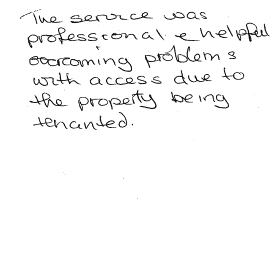 The service was
professional & helpful
overcoming problems
with access due to
the property being
tenanted.